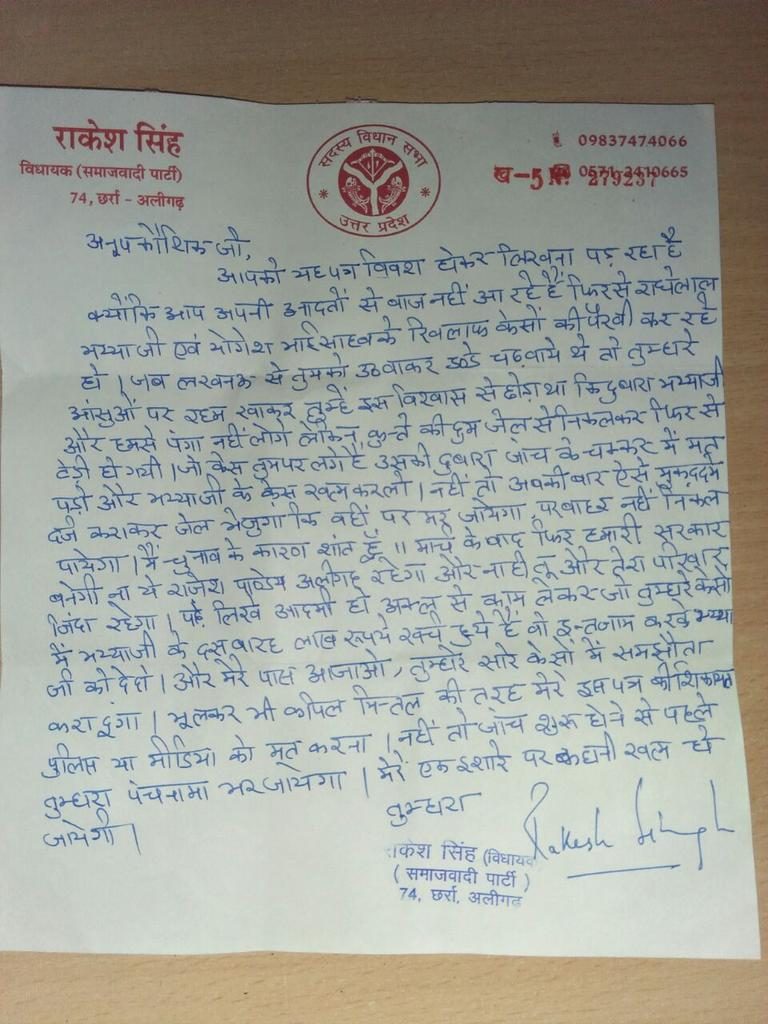 राकेश सिंह
विधायक (समाजवादी पार्टी)
74, छर्रा - अलीगढ़
सदस्य विधान सभा
उत्तर प्रदेश
09837474066
0571-2410665
ख-5 N. 279237
अनूप कौशिक जी,
आपको यह पत्र विवश होकर लिखना पड़ रहा है
क्योंकि आप अपनी आदतों से बाज नहीं आ रहे हैं फिर से राधेलाल
भय्याजी एवं योगेश भाईसाहब के खिलाफ केसों की पैरवी कर रहे
हो । जब लखनऊ से तुमको उठवाकर डंडे चढ़वाये थे तो तुम्हारे
आंसुओं पर रहम खाकर तुम्हें इस विश्वास से छोड़ा था कि दुबारा भय्याजी
और हमसे पंगा नहीं लोगे लेकिन, कुत्ते की दुम जेल से निकलकर फिर से
टेड़ी हो गयी । जो केस तुम पर लगे है उसकी दुबारा जांच के चक्कर में मत
पड़ो और भय्याजी के केस खत्म करलो । नहीं तो अबकी बार ऐसे मुकद्दमे
दर्ज कराकर जेल भेजुगा कि वहीं पर मर जायेगा, पर बाहर नहीं निकल
पायेगा । मैं चुनाव के कारण शांत हूँ 11 मार्च के बाद फिर हमारी सरकार
बनेगी ना ये राजेश पाण्डेय अलीगढ़ रहेगा और ना ही तू और तेरा परिवार
जिंदा रहेगा । पढ़े लिखे आदमी हो अकल से काम लेकर जो तुम्हारे केसों
में भय्याजी के दस बारह लाख रूपये खर्च हुये हैं वो इन्तजाम करके भय्या
जी को दे दो । और मेरे पास आजाओ, तुम्हारे सारे केसों में समझौता
करा दूंगा । भूलकर भी कपिल मित्तल की तरह मेरे इस पत्र की शिकायत
पुलिस या मीडिया को मत करना । नहीं तो जांच शुरू होने से पहले
तुम्हारा पंचनामा भर जायेगा । मेरे एक इशारे पर कहानी खत्म हो
जायेगी ।
तुम्हारा
Rakesh Singh
राकेश सिंह (विधायक
( समाजवादी पार्टी )
74, छर्रा, अलीगढ़